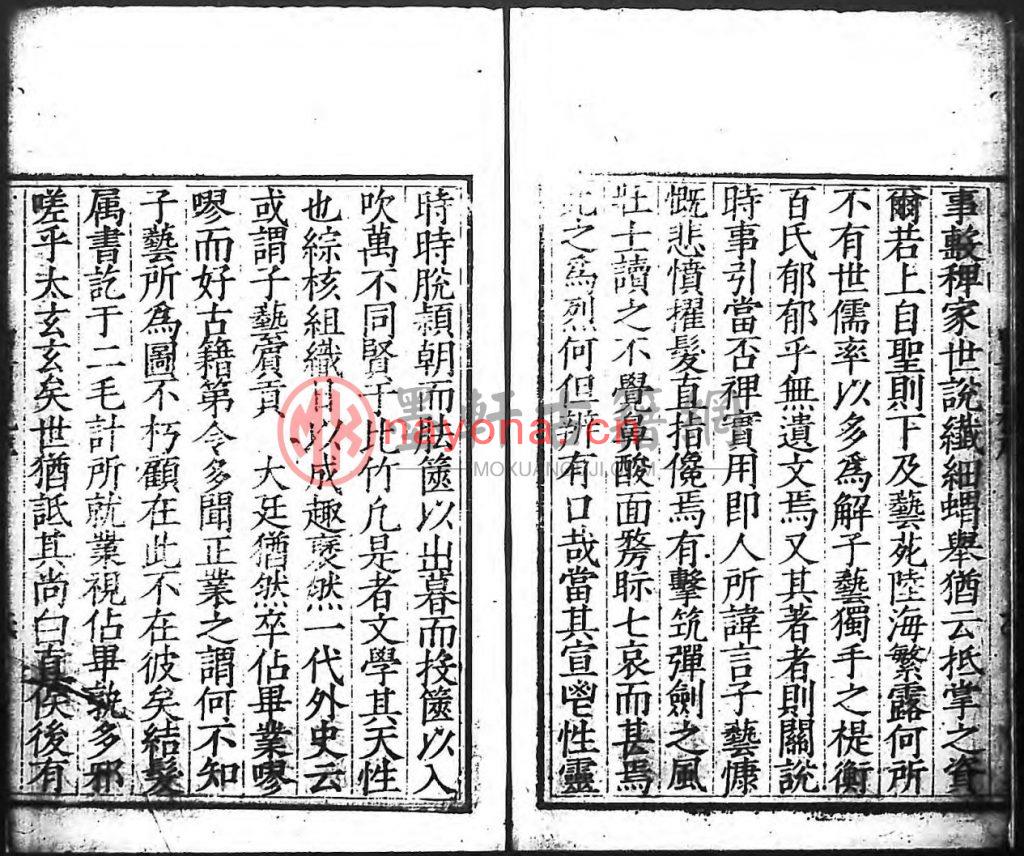 事藪稗家世說纖細蝟舉猶云抵掌之資
爾若上自聖則下及藝苑陸海繁露何所
不有世儒率以多為解子藝獨手之榥衡
百氏郁郁乎無遺文焉又其著者則關說
時事引當否裨實用即人所諱言子藝慷
慨悲憤擢髮直指儳焉有擊筑彈劍之風
壯士讀之不覺鼻酸面 眎七哀而甚焉
此之為烈何但辨有口哉當其宣鬯性靈
時時脫穎朝而胠篋以出暮而投篋以入
吹萬不同賢于地竹凢是者文學其天性
也綜核組織目以成趣褎然一代外史云
或謂子藝賔貢大廷猶然卒佔畢業嘐
嘐而好古籍第令多聞正業之謂何不知
子藝所為圖不朽顧在此不在彼矣結髮
属書訖于二毛計所就業視佔畢孰多邪
嗟乎太玄玄矣世猶詆其尚白直俟後有
墨軒古籍網
nayona.cn
MOXUANGUJI.COM